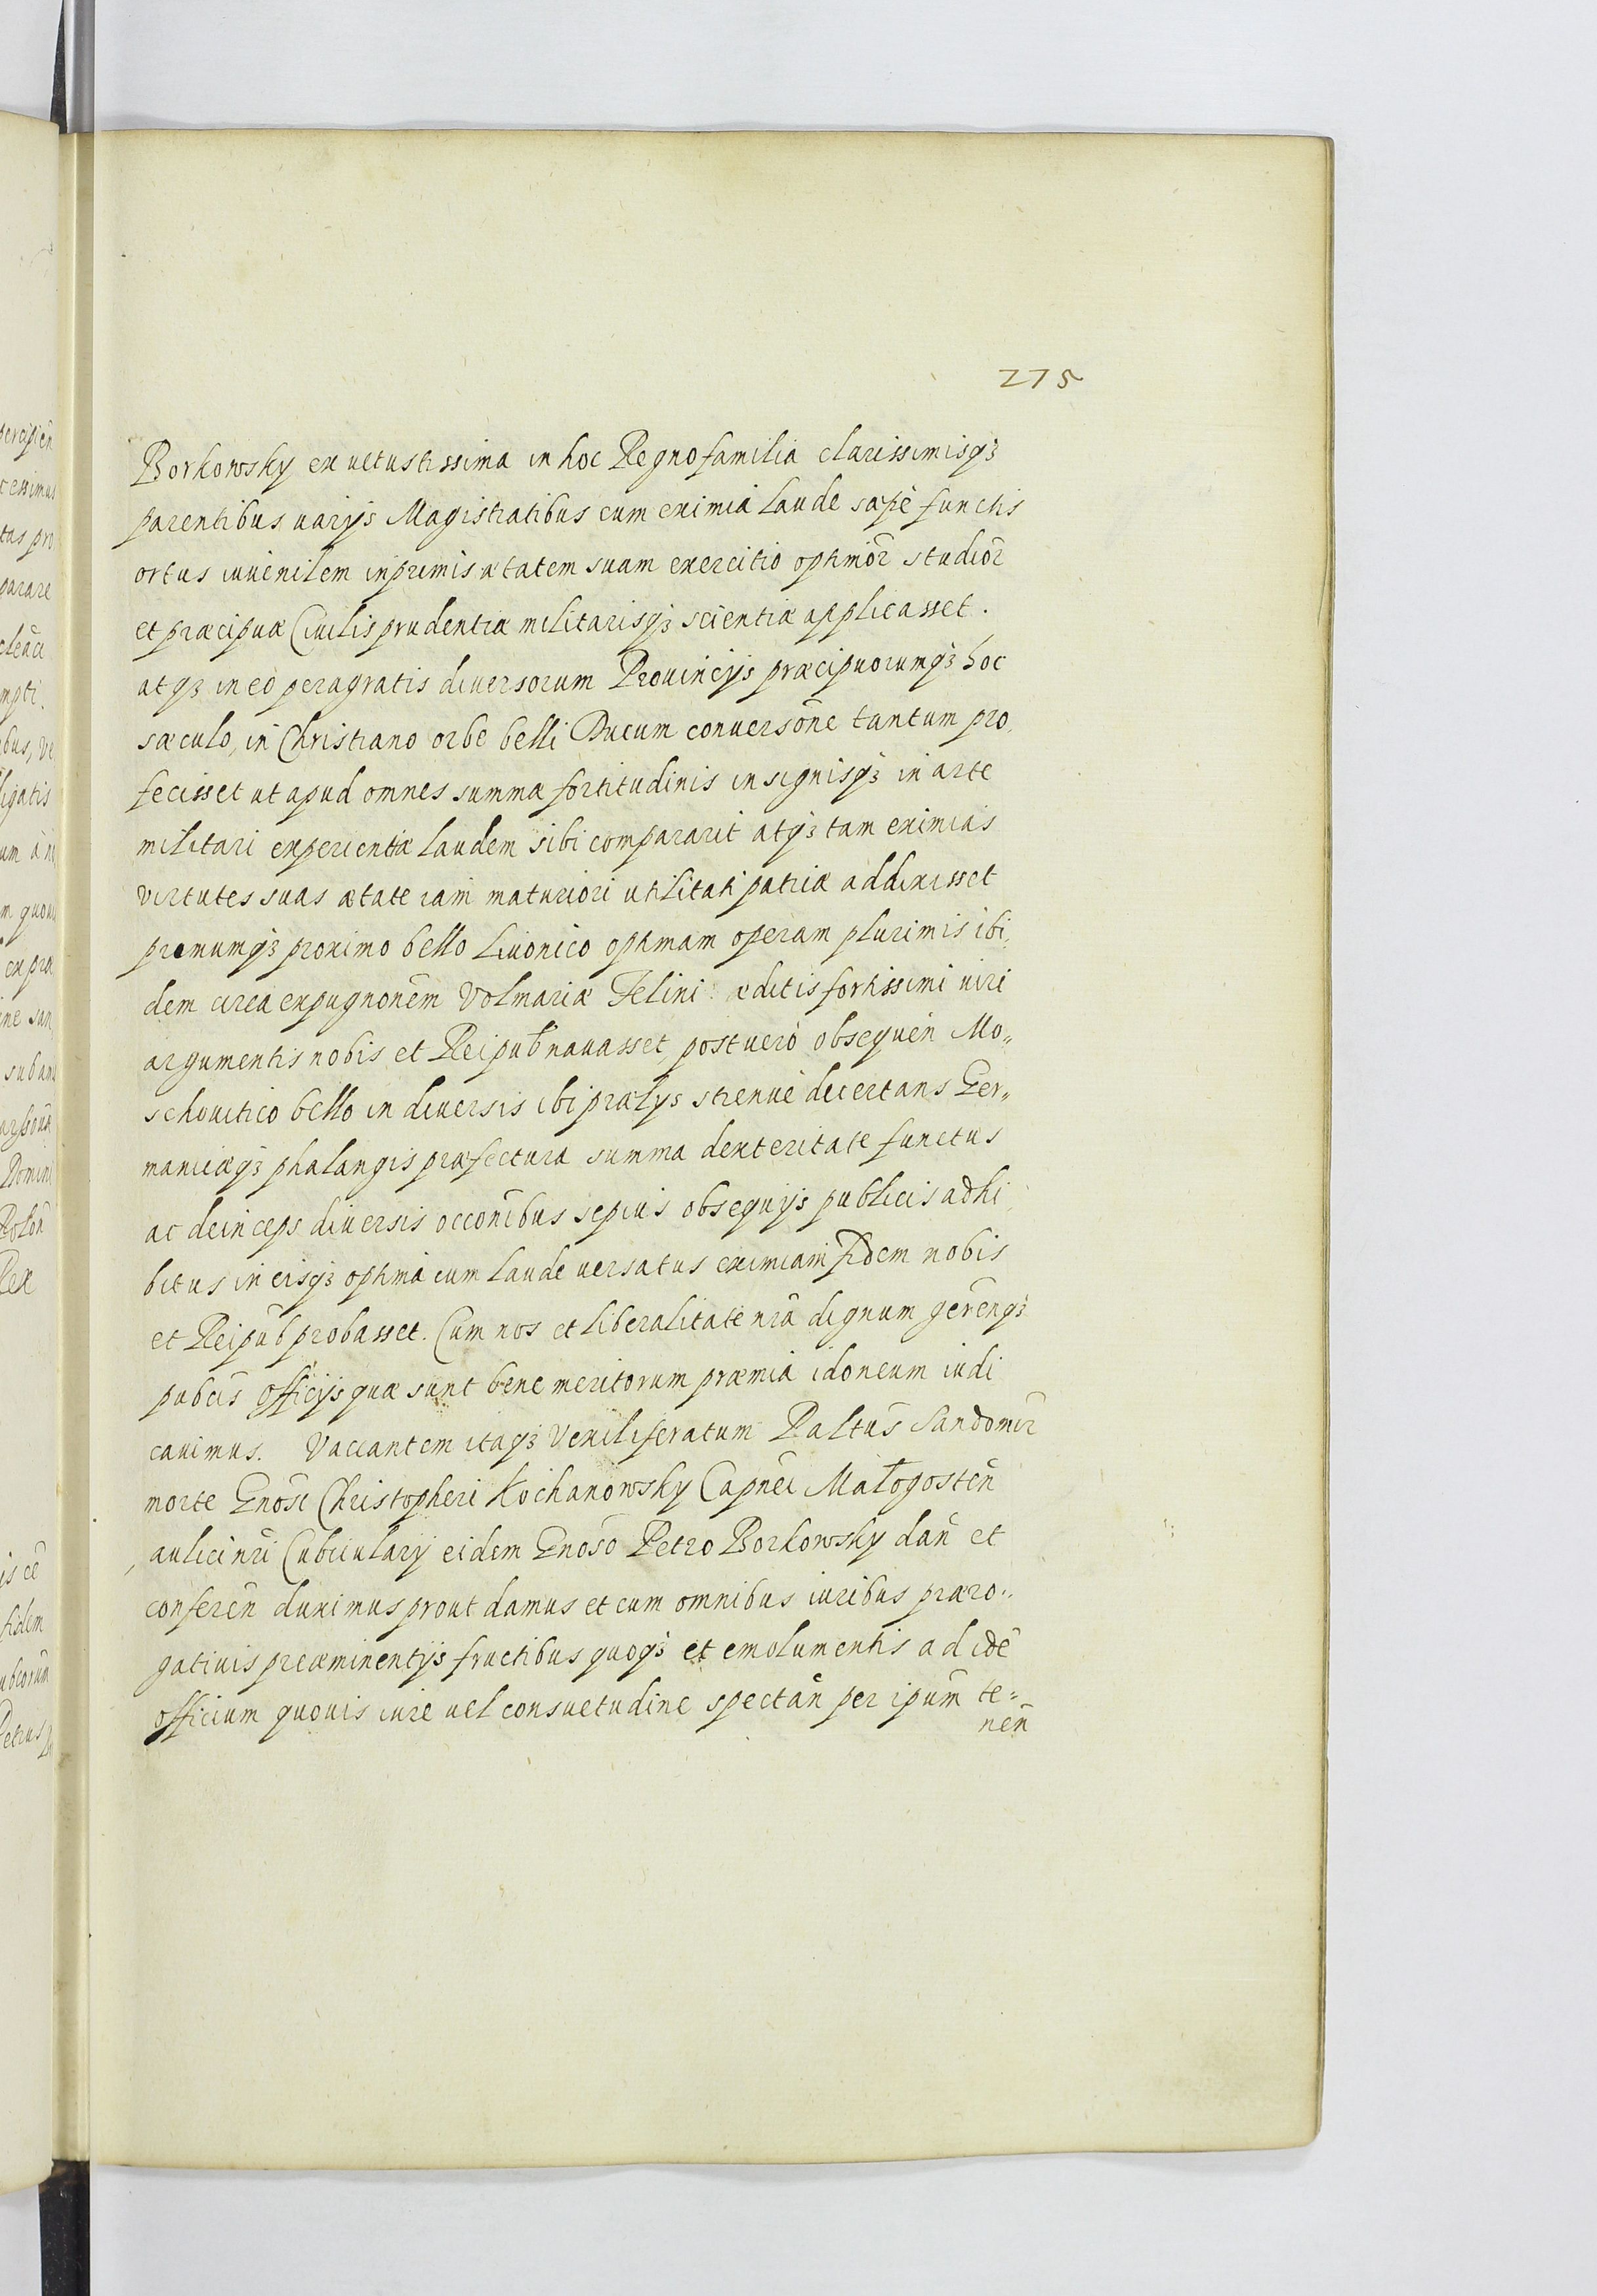 275
Borkowsky ex uetustissima in hoc Regno familia clarissimisqꝫ
parentibus uarijs Magistratibus cum eximia laude sæpè functis
ortus iuuenilem inprimis ætatem suam exercitio optimor̃ studior̃
et præcipuæ Ciuilis prudentiæ militarisqꝫ scientiæ applicasset.
atqꝫ in eo peragratis diuersorum Prouincijs præcipuorumqꝫ hoc
sæculo, in Christiano orbe belli Ducum conuersone tantum pro,
fecisset ut apud omnes summæ fortitudinis insignisqꝫ in arte
militari experientiæ laudem sibi compararit atqꝫ tam eximias
virtutes suas ætate iam maturiori utilitati patriæ addixisset
primumqꝫ proximo bello Liuonico optimam operam plurimis ibi,
dem circa expugnonem Volmariæ Felini æditis fortissimi uiri
argumentis nobis et Reipub nauasset, post uerò obsequeñ Mo„
schouitico bello in diuersis ibi prælys strenuè decertans Ger„
manicæqꝫ phalangis præfectura summa dexteritate functus
ac deinceps diuersis occonibus sepius obsequijs publicis adhi,
bitus in eisqꝫ optima cum laude uersatus eximiam fidem nobis
et Reipub probasset. Cum nos et liberalitate nrã dignum gerenqꝫ
pubcis officijs quæ sunt bene meritorum præmia idoneum iudi
cauimus. Vacantem itaqꝫ Vexiliferatum Paltus Sandomir̃
morte Gnosi Christopheri Kochanowsky Capnei Małogosteñ
aulici nri Cubicularij eidem Gnoso Petro Borkowsky dañ et
confereñ duximus prout damus et cum omnibus iuribus præro„
gatiuis preæminentijs fructibus quoqꝫ et emolumentis ad idẽ
officium quouis iure uel consuetudine spectañ per ipum te=
neñ